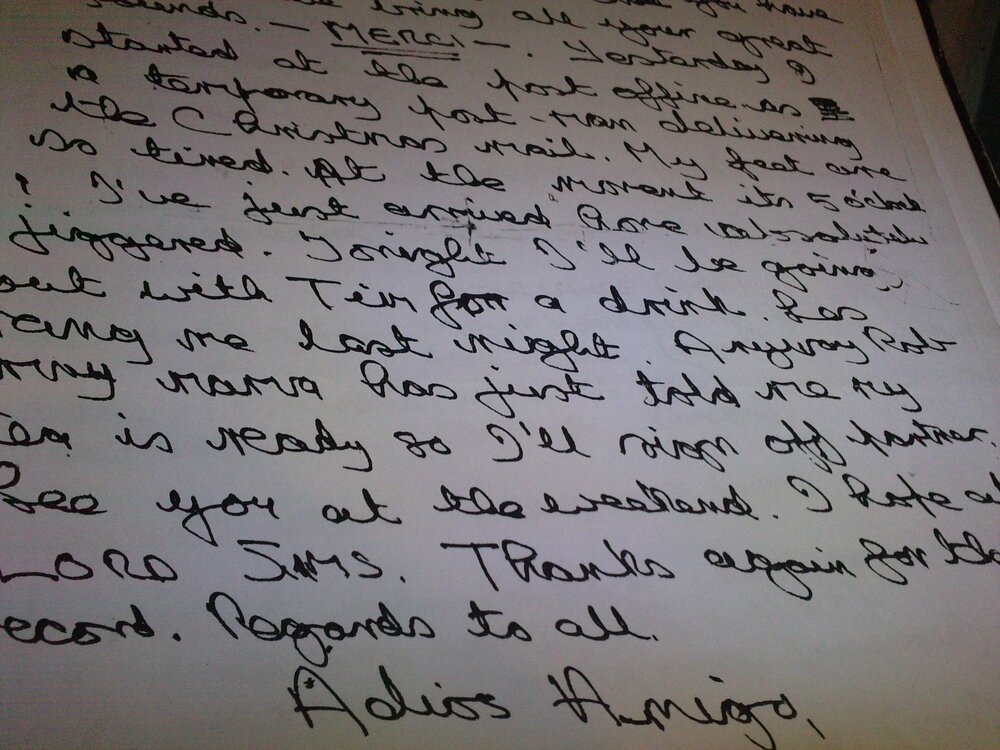 you have
sounds. — bring all your great
— MERCI —. Yesterday I
started at the post office as
a temporary post-man delivering
the Christmas mail. My feet are
so tired. At the moment its 5 o'clock
! I've just arrived home absolutely
jiggered. Tonight I'll be going
out with Tim for a drink. has
rang me last night. Anyway Rob
my mama has just told me my
tea is ready so I'll sign off partner.
See you at the weekend. I hope at
LORD SIMS. Thanks again for the
record. Regards to all.
Adios Amigo,